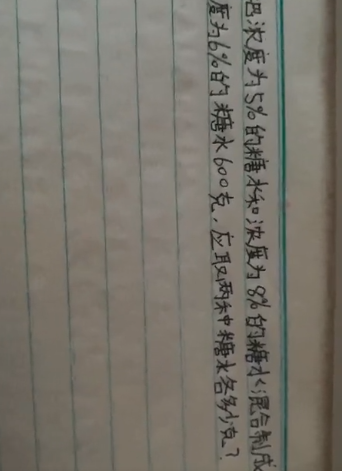 把浓度为5%的糖水和浓度为8%的糖水混合制成
度为6%的糖水600克,应取两种糖水各多少克?